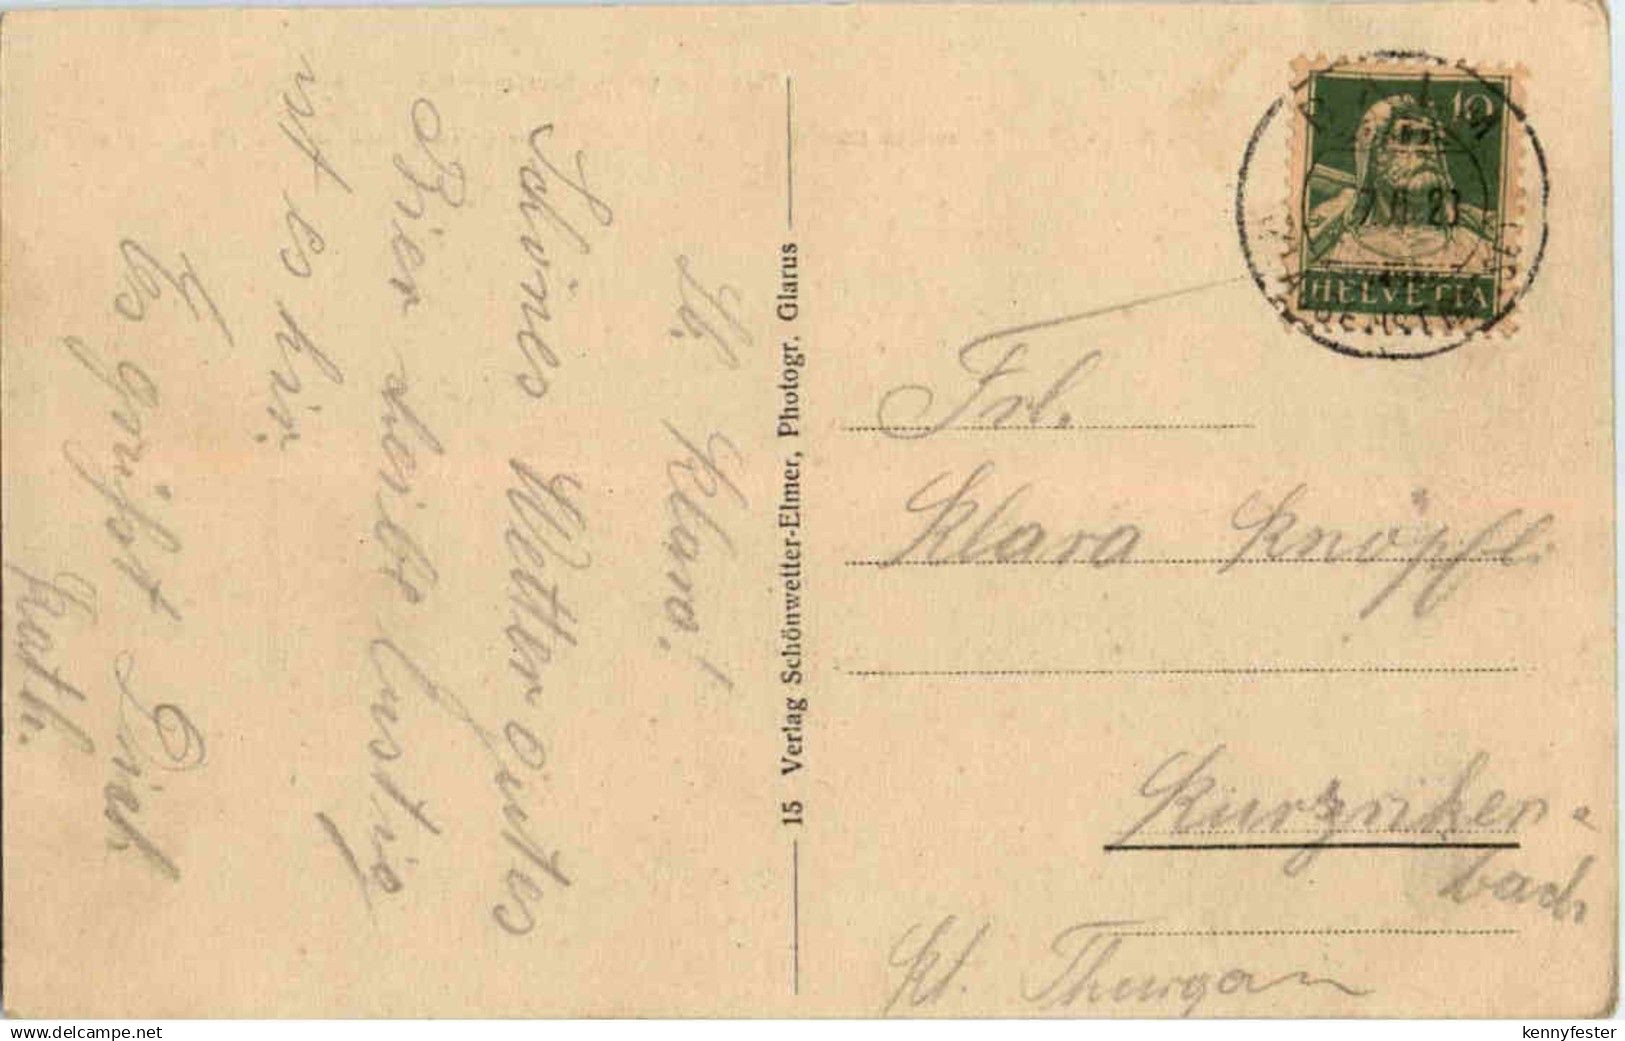 Lb. Klara!
Schönes Wetter gutes
Bier und lustig
ist es hir
Es grüsst Dich
Kath.
15 Verlag Schönwetter-Elmer, Photogr. Glarus
10
HELVETIA
Frl.
Klara Knöpfl.
Kurzriker-
bach
Kt. Thurgau
kennyfester